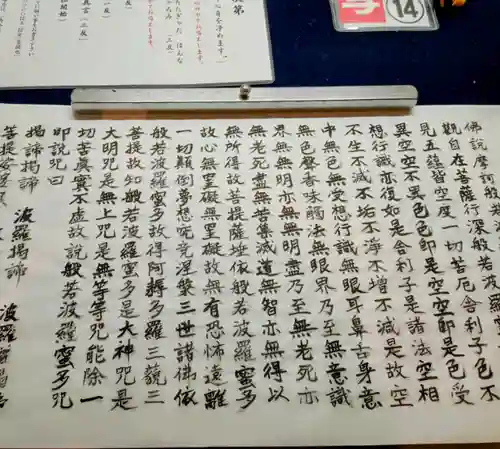 佛説摩訶般若波羅
觀自在菩薩行深般若波
見五蘊皆空度一切苦厄舍利子色不
異空空不異色色即是空空即是色受
想行識亦復如是舍利子是諸法空相
不生不滅不垢不淨不增不減是故空
中無色無受想行識無眼耳鼻舌身意
無色聲香味觸法無眼界乃至無意識
界無無明亦無無明盡乃至無老死亦
無老死盡無苦集滅道無智亦無得以
無所得故菩提薩埵依般若波羅蜜多
故心無罣礙無罣礙故無有恐怖遠離
一切顛倒夢想究竟涅槃三世諸佛依
般若波羅蜜多故得阿耨多羅三藐三
菩提故知般若波羅蜜多是大神咒是
大明咒是無上咒是無等等咒能除一
切苦真實不虛故說般若波羅蜜多咒
即說咒曰
揭諦揭諦 波羅揭諦 波羅
菩提
第
を浄めます。
14